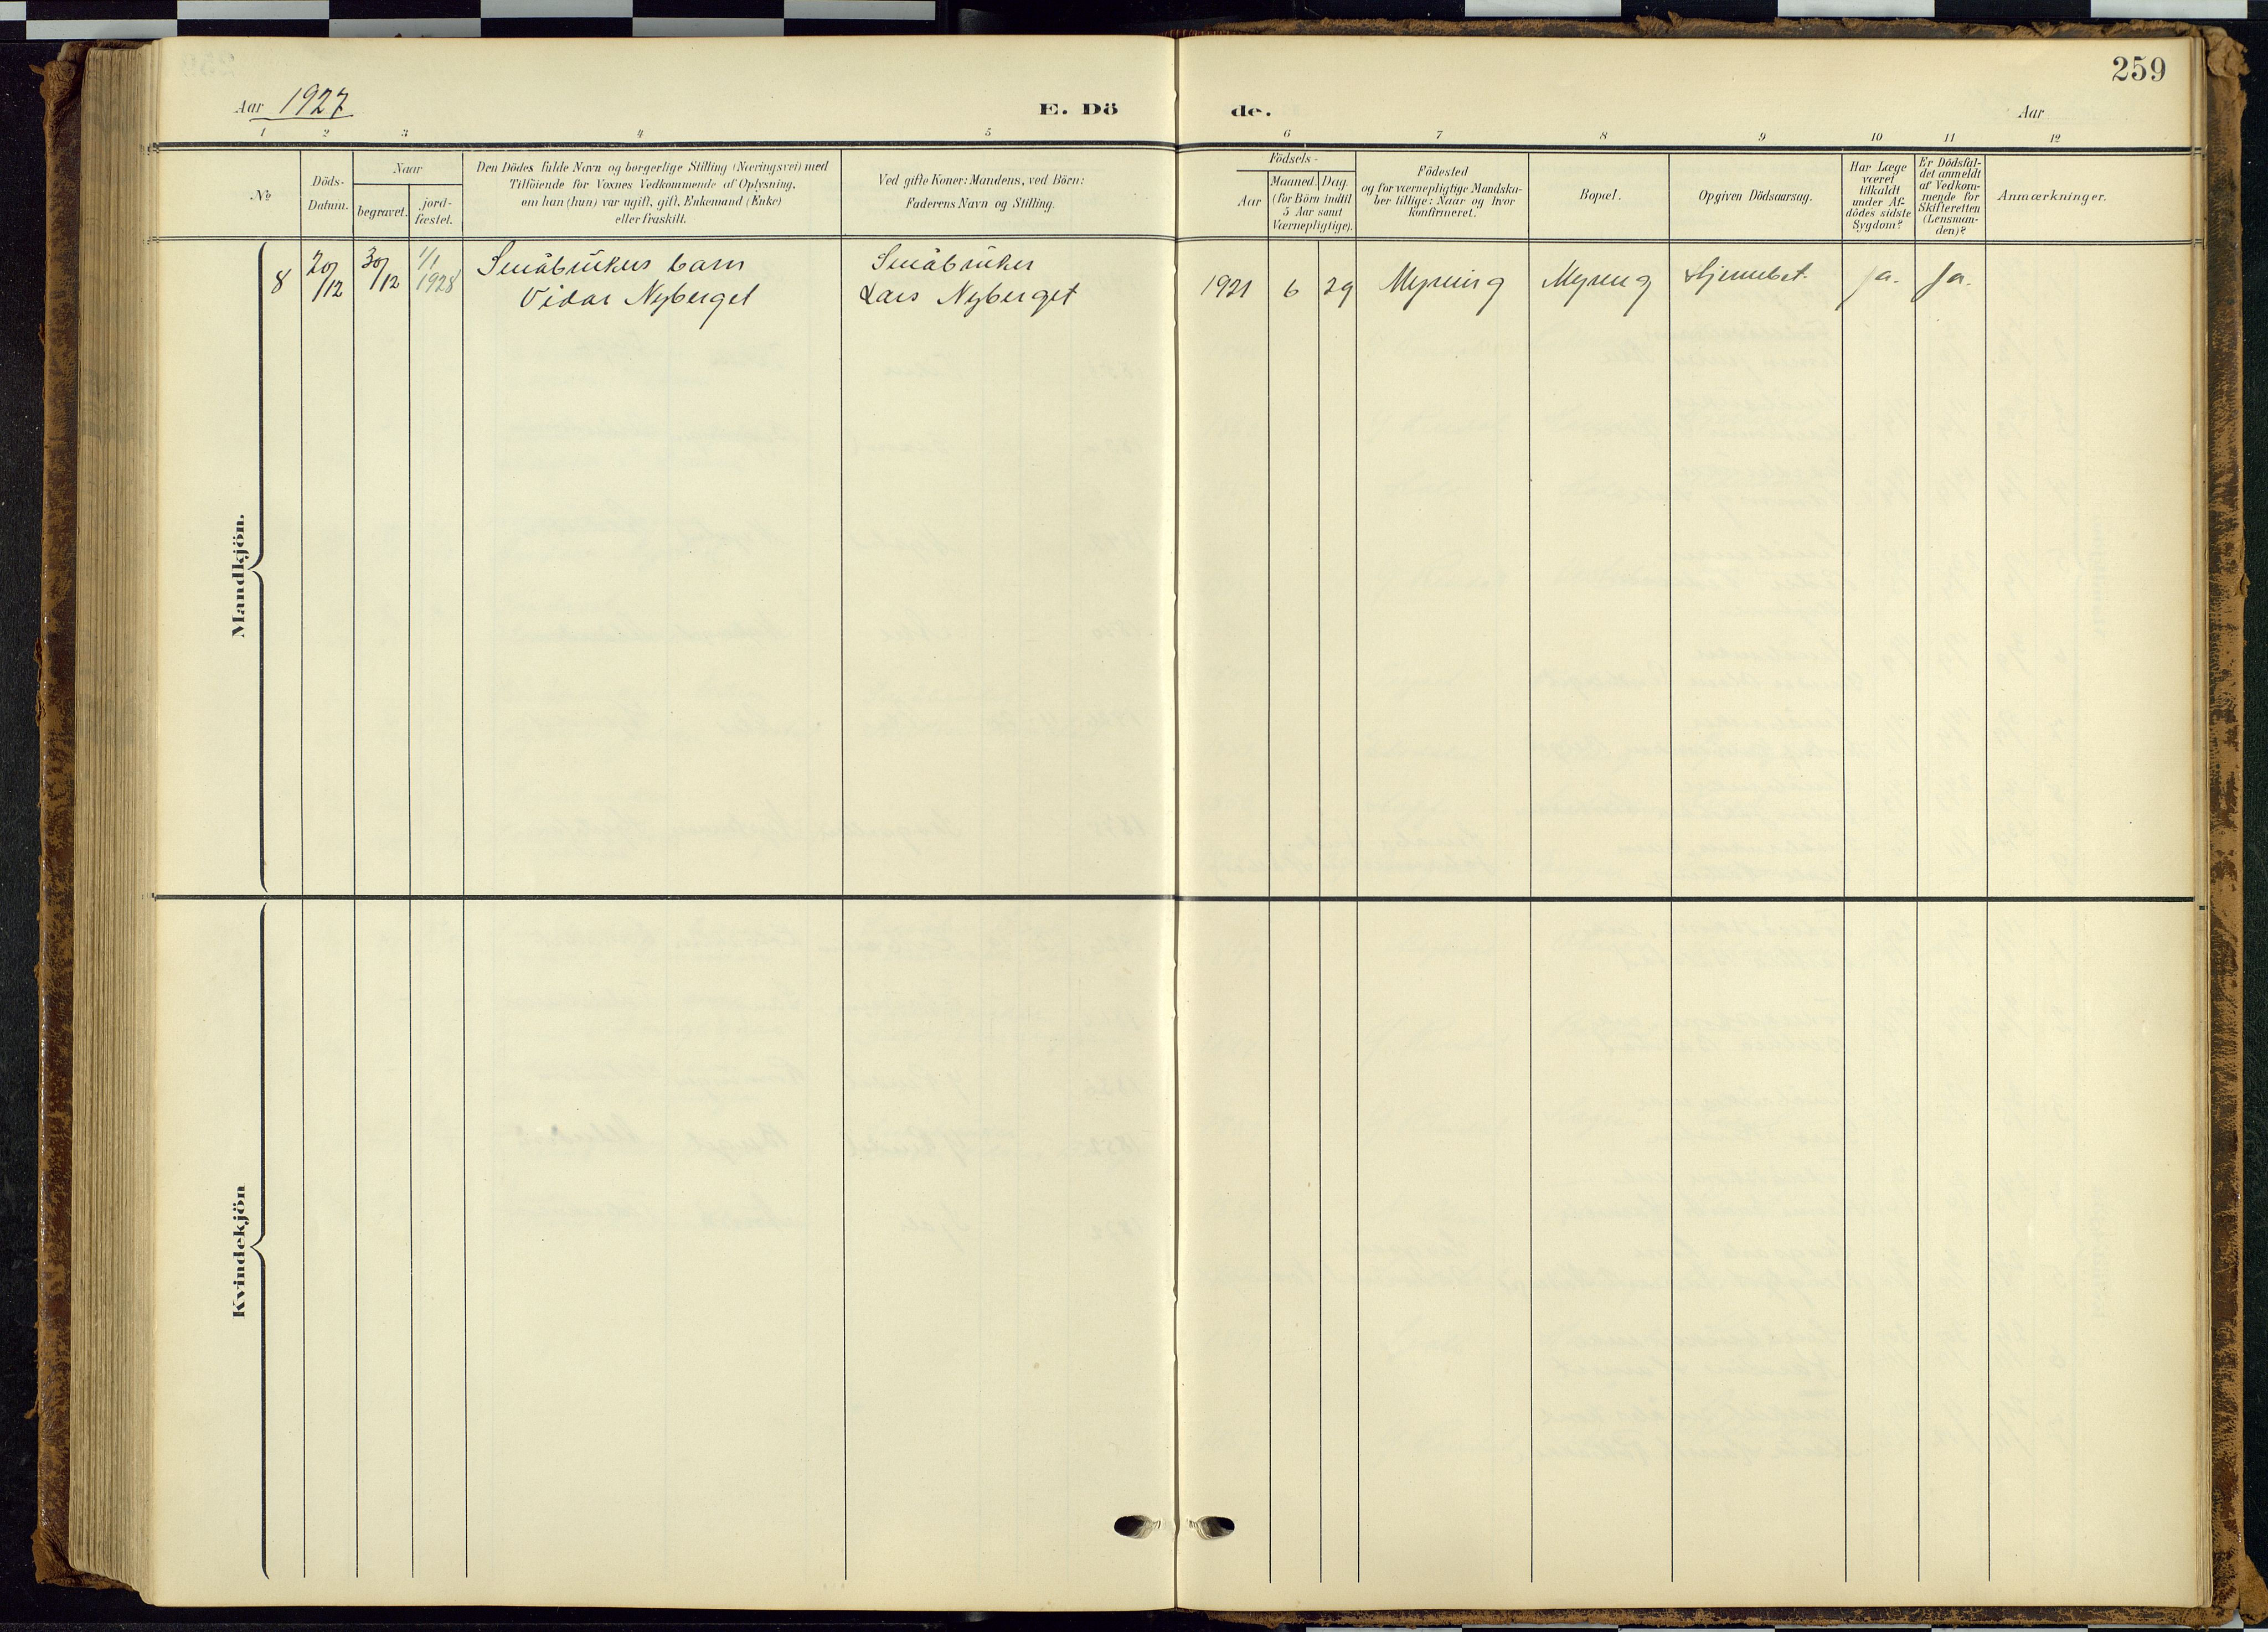 259
Aar 1927
E. Dö
de.
Aar
1 2 3 4 5 6 7 8 9 10 11 12
№
Döds-
Datum.
Naar
begravet.
jord-
fæstet.
Den Dödes fulde Navn og borgerlige Stilling (Næringsvei) med
Tilföiende for Voxnes Vedkommende af Oplysning,
om han (hun) var ugift, gift, Enkemand (Enke)
eller fraskilt.
Ved gifte Koner: Mandens, ved Börn:
Faderens Navn og Stilling.
Födsels-
Aar
Maaned. Dag.
(for Börn indtil
5 Aar samt
Værnepligtige).
Födested
og for værnepligtige Mandska-
ber tillige: Naar og hvor
konfirmeret.
Bopæl.
Opgiven Dödsaarsag.
Har Læge
været
tilkaldt
under Af-
dödes sidste
Sygdom?
Er Dödsfal-
det anmeldt
af Vedkom-
mende for
Skifteretten
(Lensman-
den)?
Anmærkninger.
Mandkjön.
8
20/12
30/12
1/1
1928
Småbrukers barn
Vidar Nyberget
Småbruker
Lars Nyberget
1921 6 29
Myrung
Myrung
Hjernebet.
Ja.
Ja.
Kvindekjön